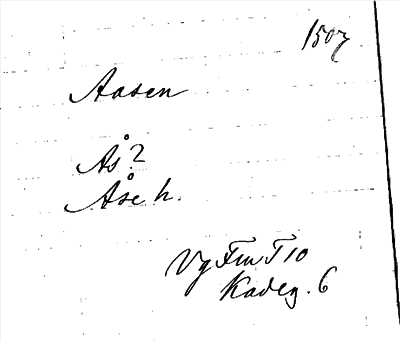 1507
Aasen
Ås?
Åse h.
Vg Fm T 10
Kadeg. 6